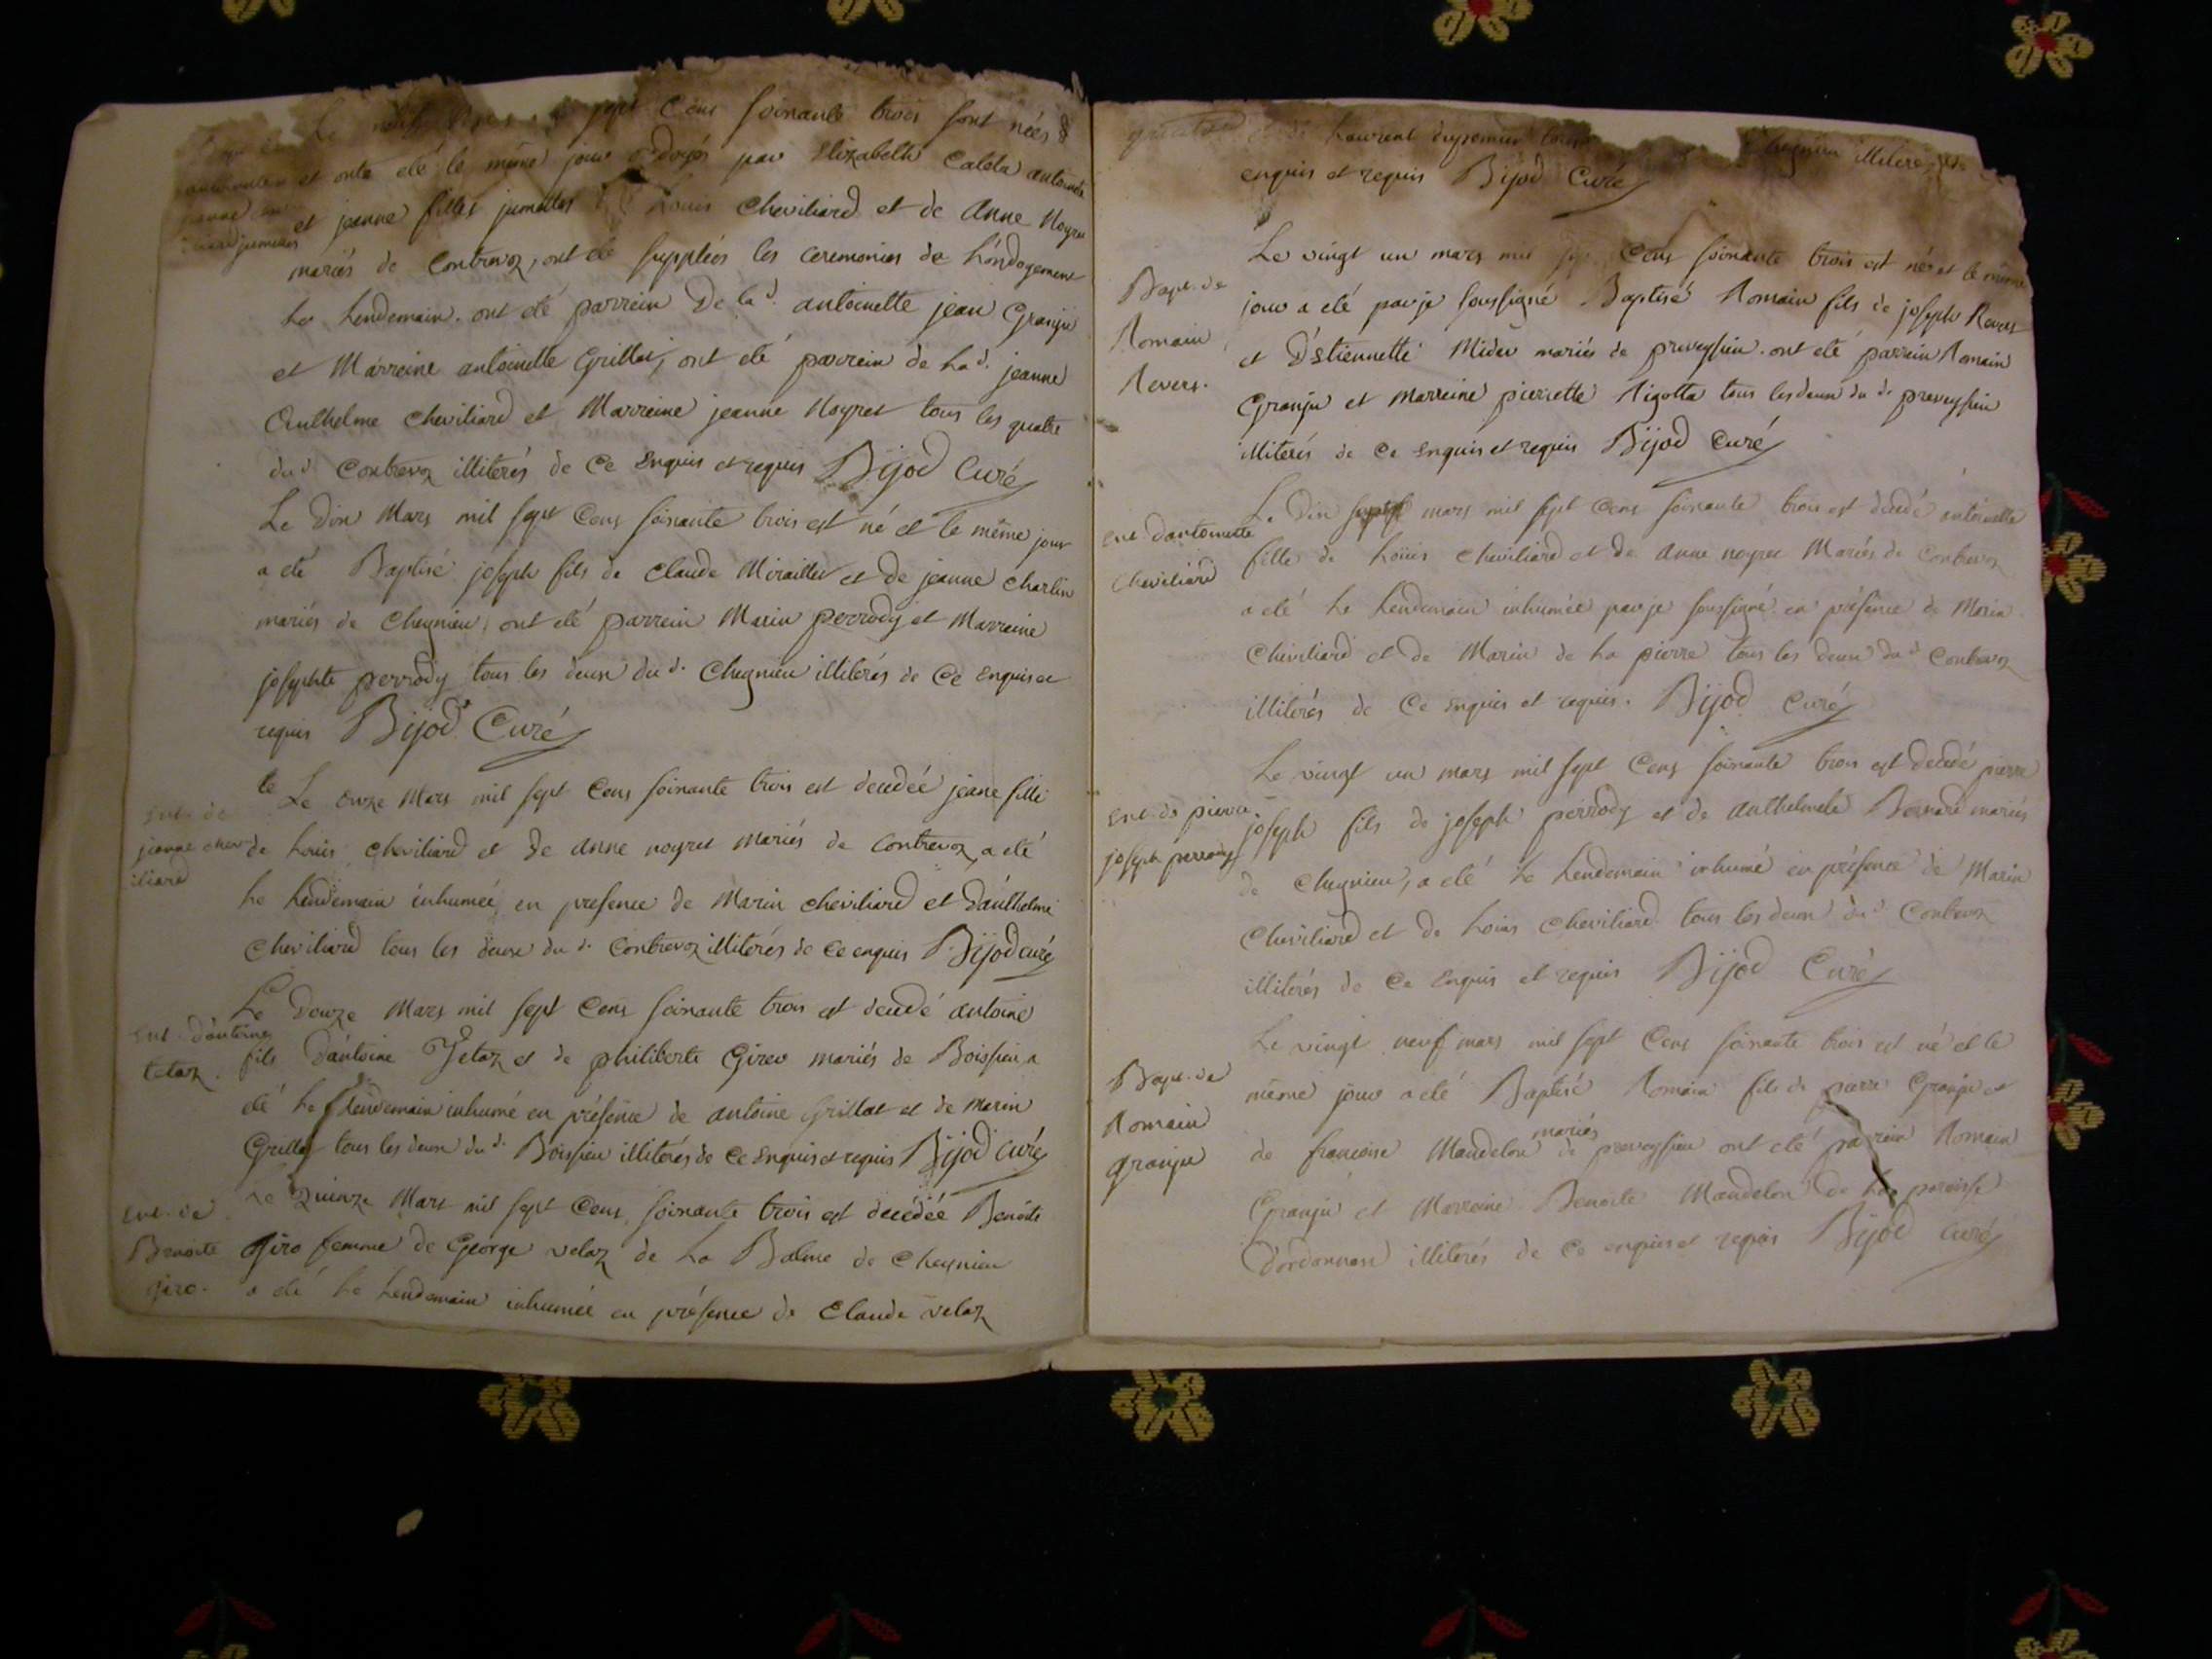 Le neuf mars sept Cens soixante trois sont nées
et onte eté le même jour ondoyés par Elizabeth Caleta antoinette
et jeanne filles jumelles Louis Cheviliard et de Anne Noyret
mariés de Contrevoz, ont été supplées les ceremonies de L'óndogement
Le Lendemain. ont eté parrein De la d. antoinette jean Granju
et Marreine antoinette Grillat, ont eté parrein de La d. jeanne
Anthelme Cheviliard et Marreine jeanne Noyret tous les quatre
du d Contrevoz illiterés de Ce Enquis et requis Bijod Curé
Le Dix Mars mil sept Cens soixante trois est né et le même jour
a eté Baptisé joseph fils de Claude Miraillet et de jeanne Charlin
mariés de Chegnieu, ont eté parrein Marin perrody et Marreine
josephte perrody tous les deux du d. Chegnieu illiterés de Ce Enquis et
requis Bijod Curé
Ent. de
jeanne chev-
iliard
te Le Onze Mars mil sept Cens soixante trois est decedéé jeane fille
de Louis Cheviliard et De Anne noyret mariés de Contrevoz, a eté
Le Lendemain inhumeé en presence de Marin Cheviliard et D'anthelme
Cheviliard tous les deux du d. Contrevoz illiterés de Ce enquis Bijod curé
Ent. D'antoine
tetaz.
Le Douze Mars mil sept Cens soixante trois est decedé antoine
fils D'antoine Tetaz et de philiberte Girer mariés de Boissieu a
eté Le Lendemain inhumé en présence de antoine Grillat et de Marin
Grillat tous les deux du d. Boissieu illiterés de Ce Enquis et requis Bijod curé
Ent. de
Benoite
giro.
Le Quinze Mars mil sept Cens soixante trois est decedéé Benoite
Giro femme de George velaz de La Balme de Chegnieu
a eté Le Lendemain inhumeé en présence de Claude velaz
Laurent illiteré
enquis et requis Bijod Curé
Bapt. de
Romain
Revers.
Le vingt un mars mil Cens soixante trois est né et le même
jour a eté par je soussigné Baptisé Romain fils de joseph Revers
et D'Etiennette Midev mariés de preveyssieu. ont eté parrein Romain
Granju et Marreine pierrette Rigotta tous les deux du d. preveyssieu
illiterés de Ce Enquis et requis Bijod Curé
Ent. d'antoinette
Cheviliard
Le Dix mars mil sept Cens soixante trois est decedé antoinette
fille de Louis Cheviliard et de Anne noyret Mariés de Contrevoz
a eté Le Lendemain inhumée par je soussigné en présence de Marin
Cheviliard et de Marin de La pierre tous les deux du d Contrevoz
illiterés de Ce Enquis et requis. Bijod Curé
Ent. de pierre
joseph perrody
Le vingt un mars mil sept Cens soixante trois est decedé pierre
joseph fils de joseph perrody et de anthelmete Bernard mariés
de Chegnieu, a eté Le Lendemain inhumé en présence de Marin
Cheviliard et de Louis Cheviliard tous les deux du d Contrevoz
illiterés de Ce Enquis et requis Bijod Curé
Bapt. de
Romain
granju
Le vingt neuf mars mil sept Cens soixante trois est né et le
même jour a eté Baptisé Romain fils de pierre Granju et
de francoise Mandelon mariés de preveyssieu ont eté parrein Romain
Granju et Marreine Benoite Mandelon De La paroisse
D'ordonnas illiterés de Ce enquis et requis Bijod Curé